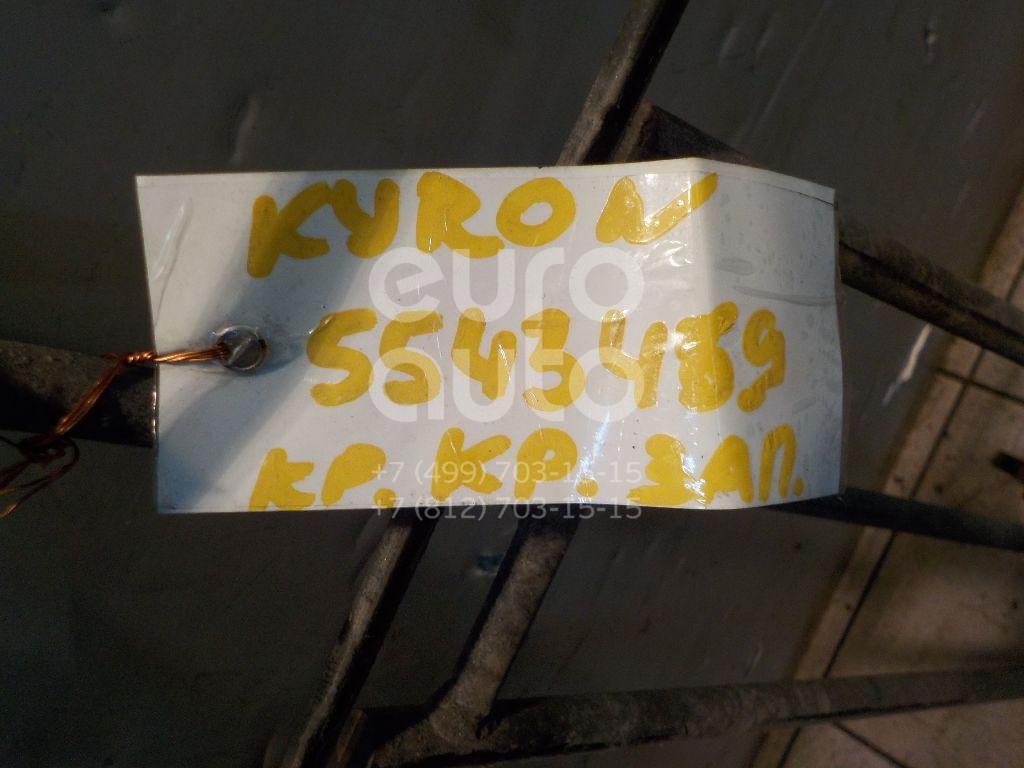 KYRON
euro
5543459
auto
КР. КР. ЗАП.
+7 (499) 703-15-15
+7 (812) 703-15-15